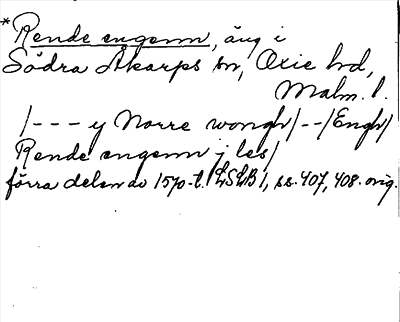 * Rende engenn, äng i
Södra Åkarps sn, Oxie hd,
Malm. l.
/--- y Norre wongh/--/Engh/
Rende engenn j les/
förra delen av 1570-t. LSLB 1, ss. 407, 408. orig.